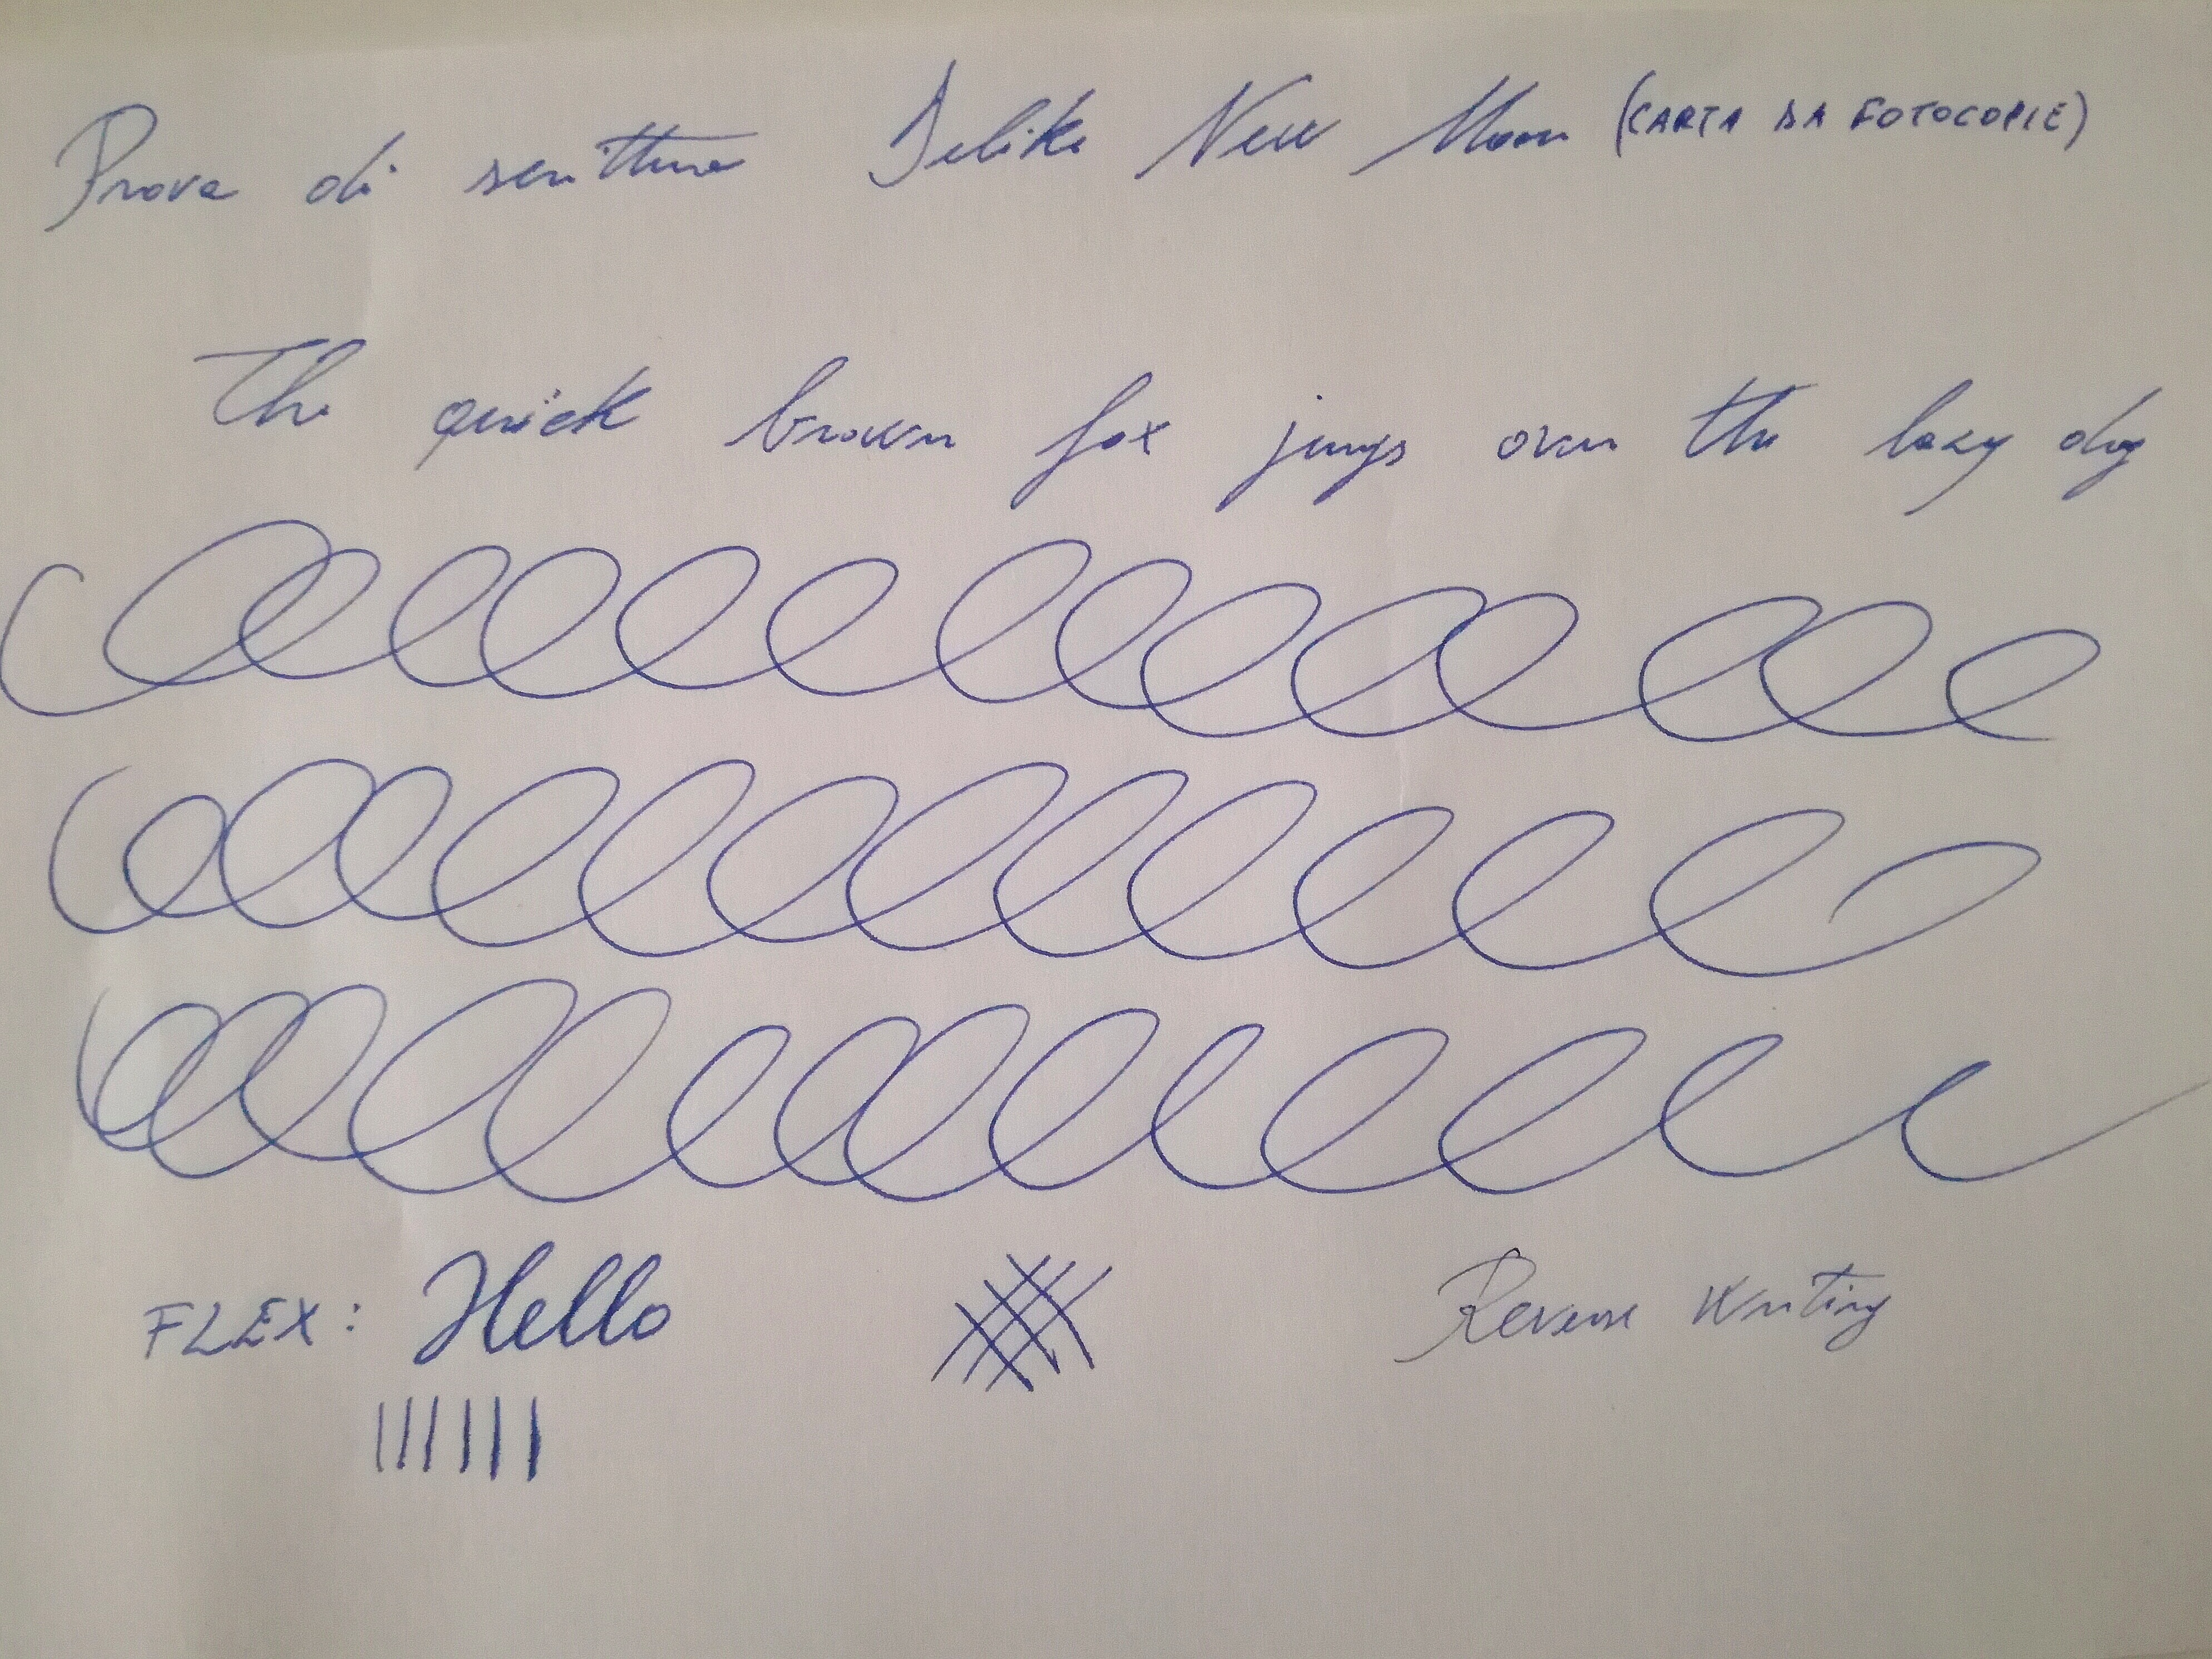 Prova di scrittura Delike New Moon (CARTA DA FOTOCOPIE)
The quick brown fox jumps over the lazy dog
FLEX: Hello
Reverse Writing